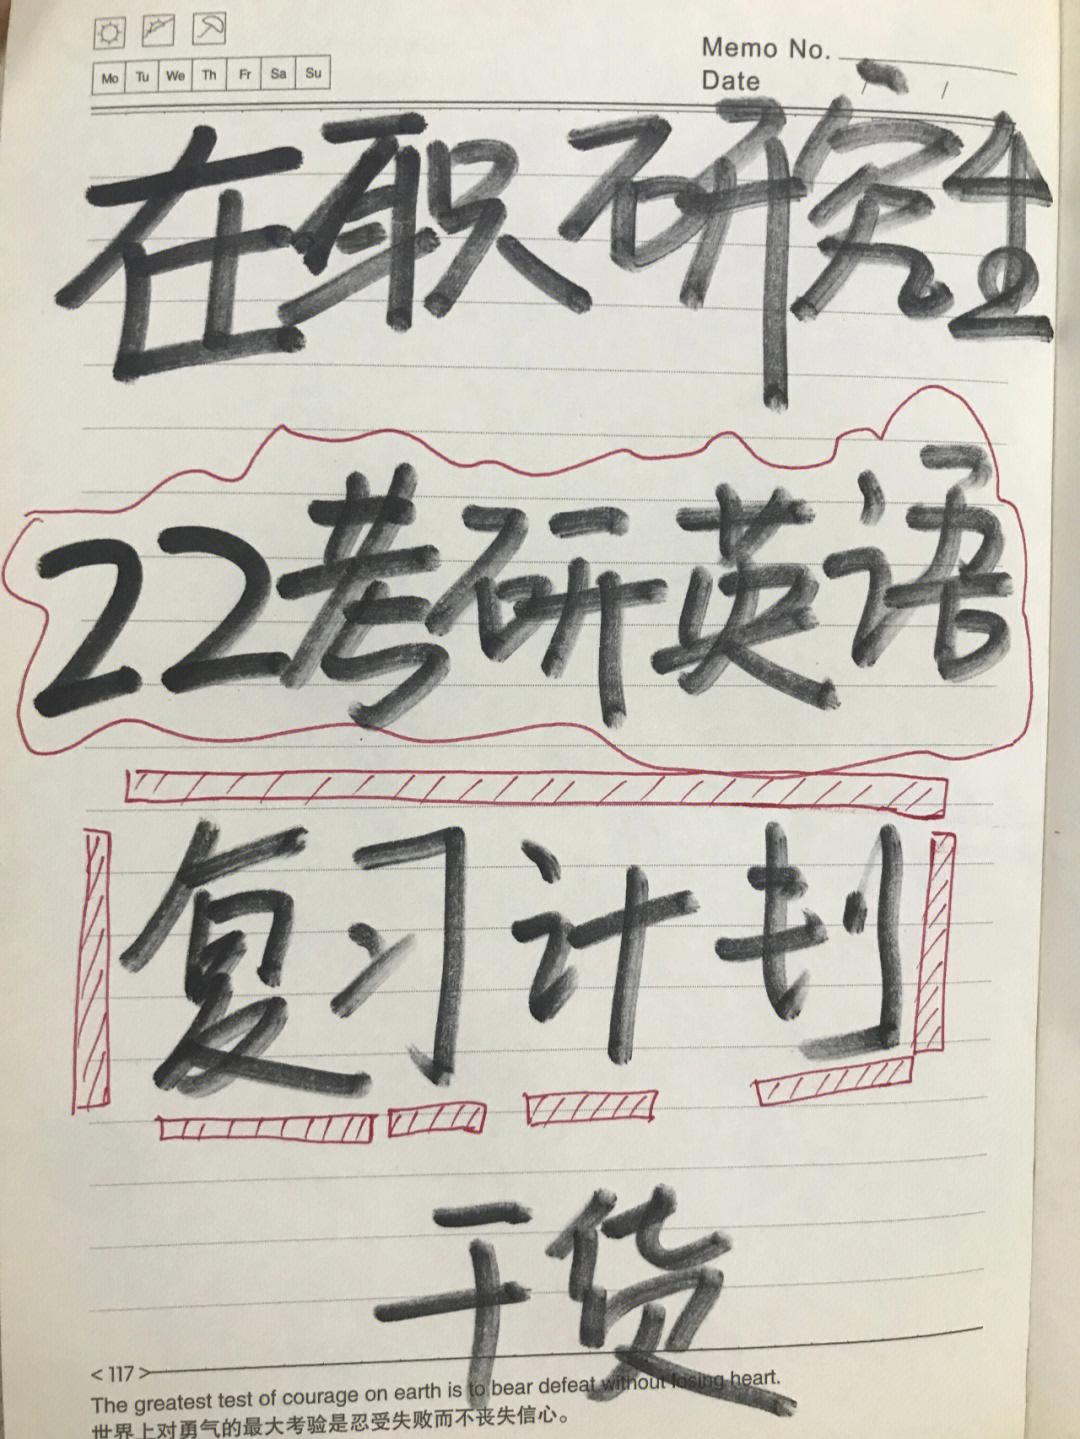 Memo No.
Mo Tu We Th Fr Sa Su
Date / /
在职研究生
22考研英语
复习计划
干货
<117>
The greatest test of courage on earth is to bear defeat without losing heart.
世界上对勇气的最大考验是忍受失败而不丧失信心。